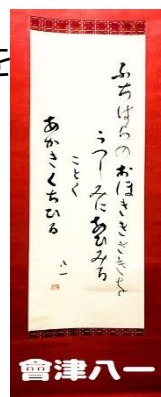 ふちはらのおほききさきを
うつしみにあひみる
ことく
あかきくちひる
八一
會津八一